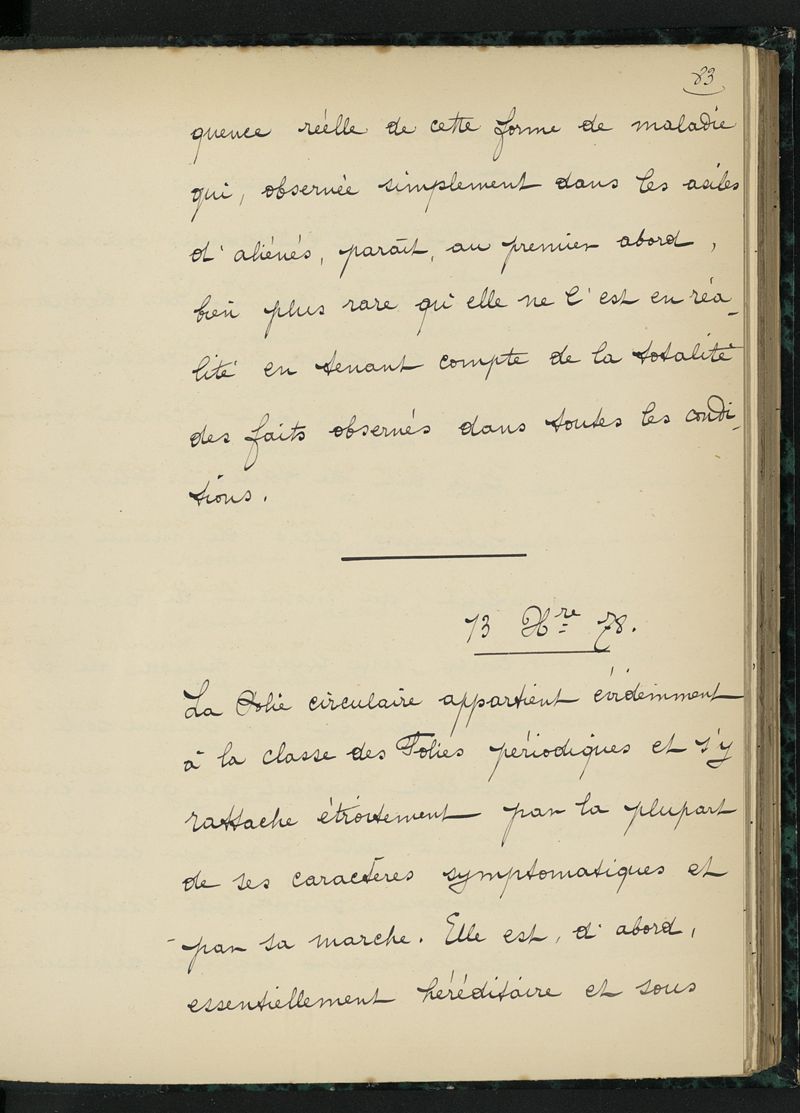 83
quence réelle de cette forme de maladie
qui, observée simplement dans les asiles
d'aliénés, paraît, au premier abord,
bien plus rare qu'elle ne l'est en réa-
lité en tenant compte de la totalité
des faits observés dans toutes les condi-
tions.
13 Xbre 78.
La Folie circulaire appartient évidemment
à la classe des Folies périodiques et s'y
rattache étroitement par la plupart
de ses caractères symptomatiques et
par sa marche. Elle est, d'abord,
essentiellement héréditaire et sous